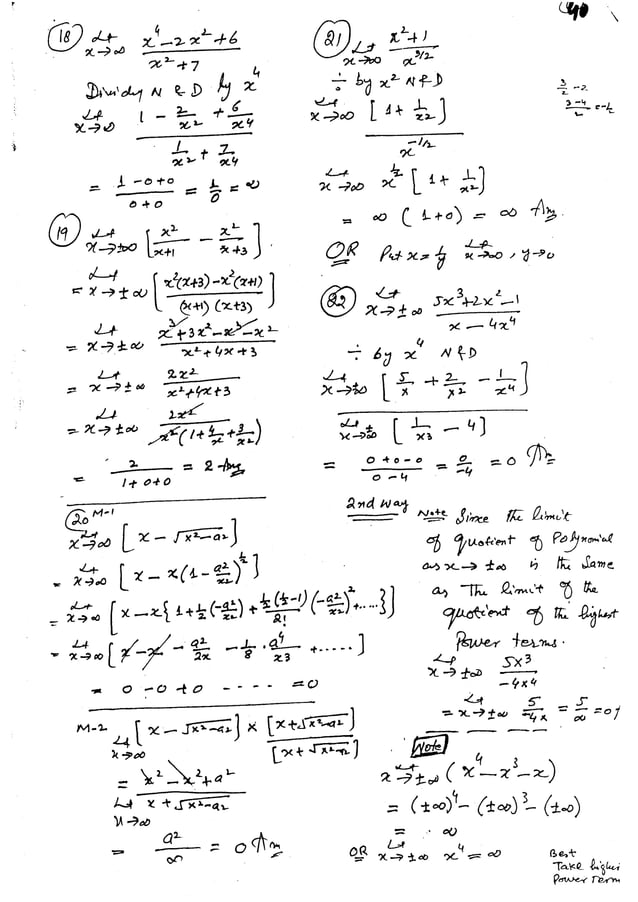 40
(18) Lt x→∞ x⁴ - 2x² + 6 / x² + 7
Dividy N & D by x⁴
Lt x→∞ 1 - 2/x² + 6/x⁴ / 1/x² + 7/x⁴
= 1 - 0 + 0 / 0 + 0 = 1/0 = ∞
(19) Lt x→±∞ [x²/x+1 - x²/x+3].
= Lt x→±∞ [x²(x+3) - x²(x+1) / (x+1)(x+3)]
= Lt x→±∞ x³ + 3x² - x³ - x² / x² + 4x + 3
= Lt x→±∞ 2x² / x² + 4x + 3
= Lt x→±∞ 2x² / x²(1 + 4/x + 3/x²)
= 2 / 1 + 0 + 0 = 2 Ans
(20) M-1
Lt x→∞ [x - √x²-a²]
= Lt x→∞ [x - x(1 - a²/x²)^½]
= Lt x→∞ [x - x{1 + ½(-a²/x²) + ½(½-1)/2! (-a²/x²)² + .....}]
= Lt x→∞ [x - x - a²/2x - 1/8 · a⁴/x³ + .....]
= 0 - 0 + 0 - - - - = 0
M-2 Lt x→∞ [x - √x²-a²] × [x + √x²-a²] / [x + √x²-a²]
= x² - x² + a² / Lt x→∞ x + √x²-a²
= a²/∞ = 0 Ans
(21) Lt x→∞ x² + 1 / x^3/2
÷ by x² N & D
3/2 - 2
3-4/2 = -½
Lt x→∞ [1 + 1/x²] / x^-1/2
Lt x→∞ x^½ [1 + 1/x²]
= ∞ (1 + 0) = ∞ Ans.
OR Put x = 1/y Lt x→∞, y→0
(22) Lt x→±∞ 5x³ + 2x² - 1 / x - 4x⁴
÷ by x⁴ N & D
Lt x→±∞ [5/x + 2/x² - 1/x⁴] / Lt x→±∞ [1/x³ - 4]
= 0 + 0 - 0 / 0 - 4 = 0/-4 = 0 Ans
2nd way Note Since the limit
of quotient of Polynomial
as x → ±∞ is the same
as The limit of the
quotient of the highest
Power terms.
Lt x→±∞ 5x³ / -4x⁴
= Lt x→±∞ 5/-4x = 5/∞ = 0
Note
Lt x→±∞ (x⁴ - x³ - x)
= (±∞)⁴ - (±∞)³ - (±∞)
= ∞
OR Lt x→±∞ x⁴ = ∞
Best
Take highe
Power Term